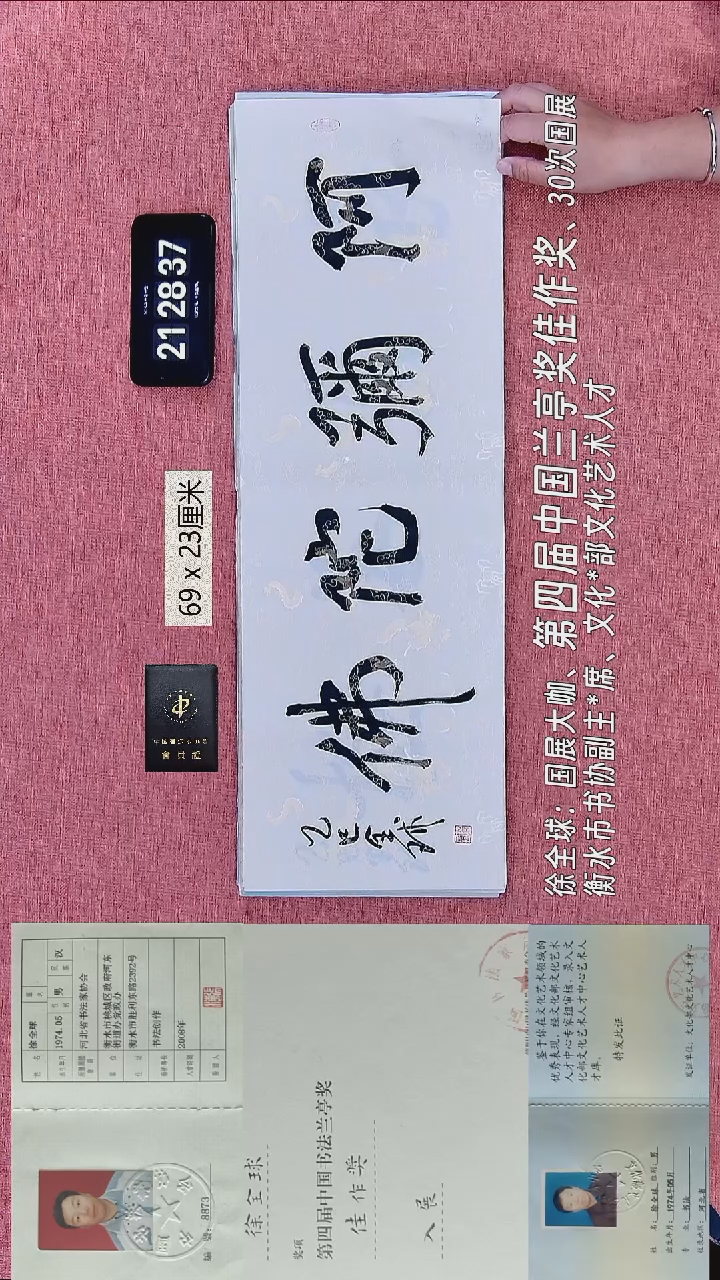 21 28 37
69 x 23厘米
阿彌陀佛
乙巳全球
徐全球：国展大咖、第四届中国兰亭奖佳作奖、30次国展
衡水市书协副主*席、文化*部文化艺术人才
徐全球
1974.05
男
汉
河北省书法家协会
衡水市桃城区政府河东
街道办党政办
衡水市胜利东路2292号
书法创作
2008年
编号：8873
徐全球
奖项
第四届中国书法兰亭奖
佳作奖
入展
鉴于你在文化艺术领域的
优秀表现，经文化部文化艺术
人才中心专家组审核，录入文
化部文化艺术人才中心艺术人
才库。
特发此证
发证单位：文化部文化艺术人才中心
姓名：徐全球 性别：男
出生年月：1974年05月
专业：书法